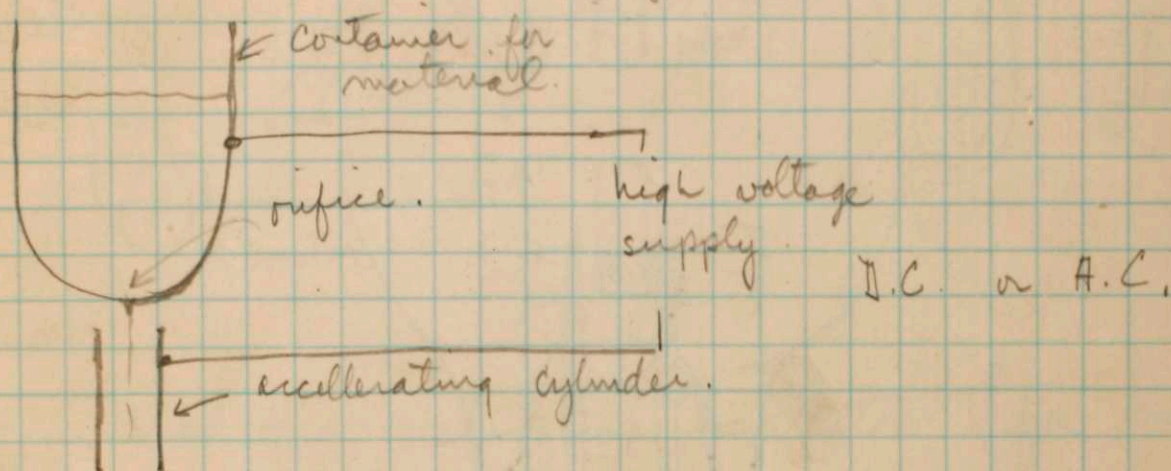 container for
material.
orifice.
high voltage
supply
D.C. or A.C.
accellerating cylinder.